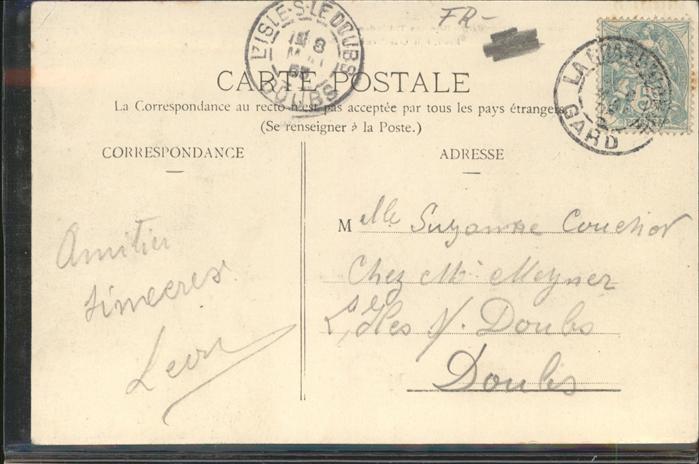 FR-
L'ISLE-S-LE DOUBS
8
DOUBS
LA GRAND
GARD
5
CARTE POSTALE
La Correspondance au recto n'est pas acceptée par tous les pays étrangers
(Se renseigner à la Poste.)
CORRESPONDANCE
Amitiés
sincères
Léon
ADRESSE
Mlle Suzanne
Chez Mr Meyner
L'Isles s/ Doubs
Doubs